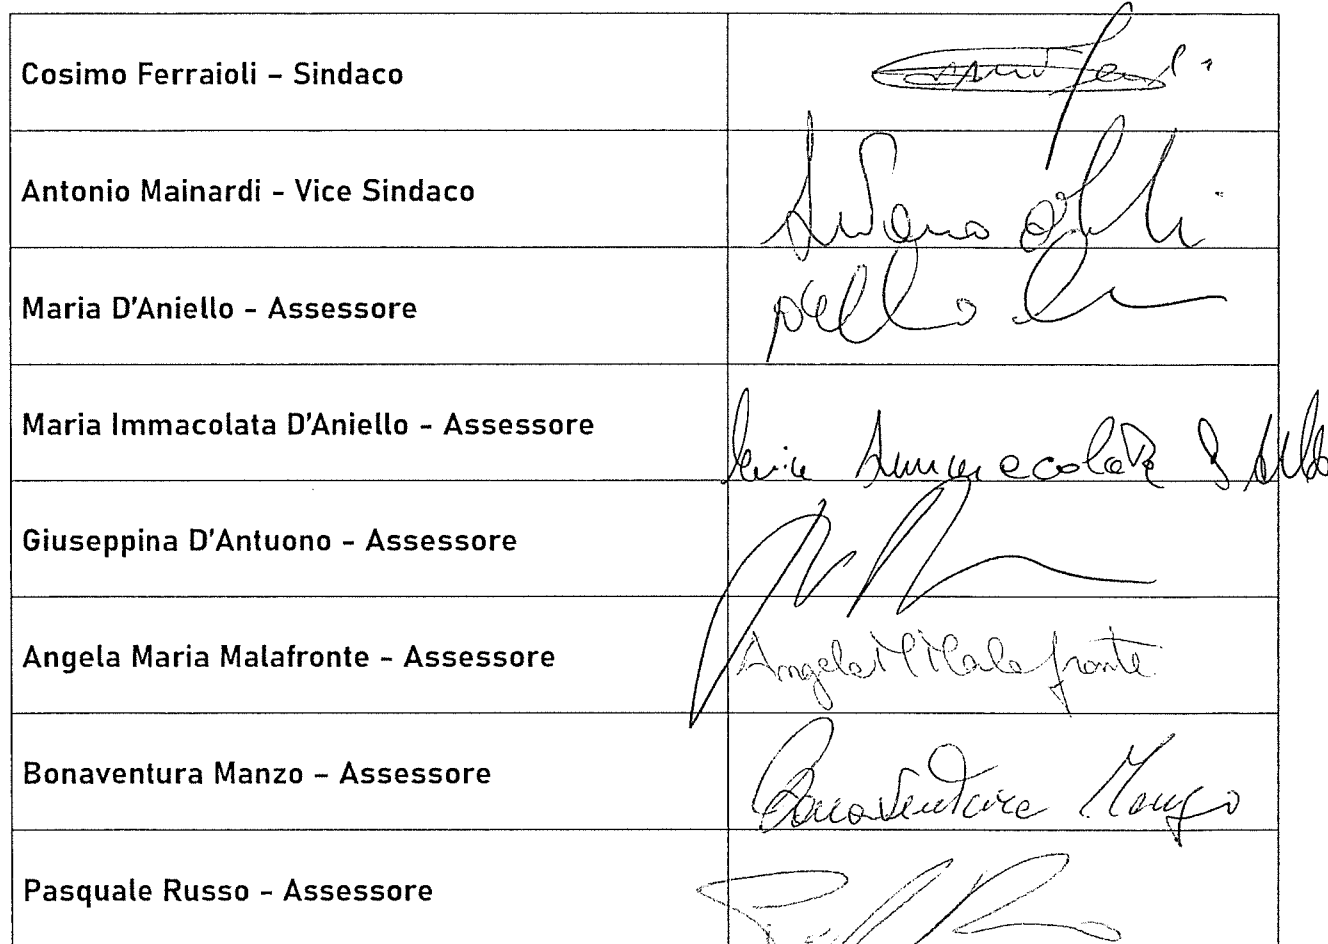 Cosimo Ferraioli – Sindaco
Antonio Mainardi – Vice Sindaco
Maria D'Aniello – Assessore
Maria Immacolata D'Aniello – Assessore
Immacolata D
Giuseppina D'Antuono – Assessore
Angela Maria Malafronte – Assessore
Angela M Malafronte
Bonaventura Manzo – Assessore
Bonaventura Manzo
Pasquale Russo – Assessore